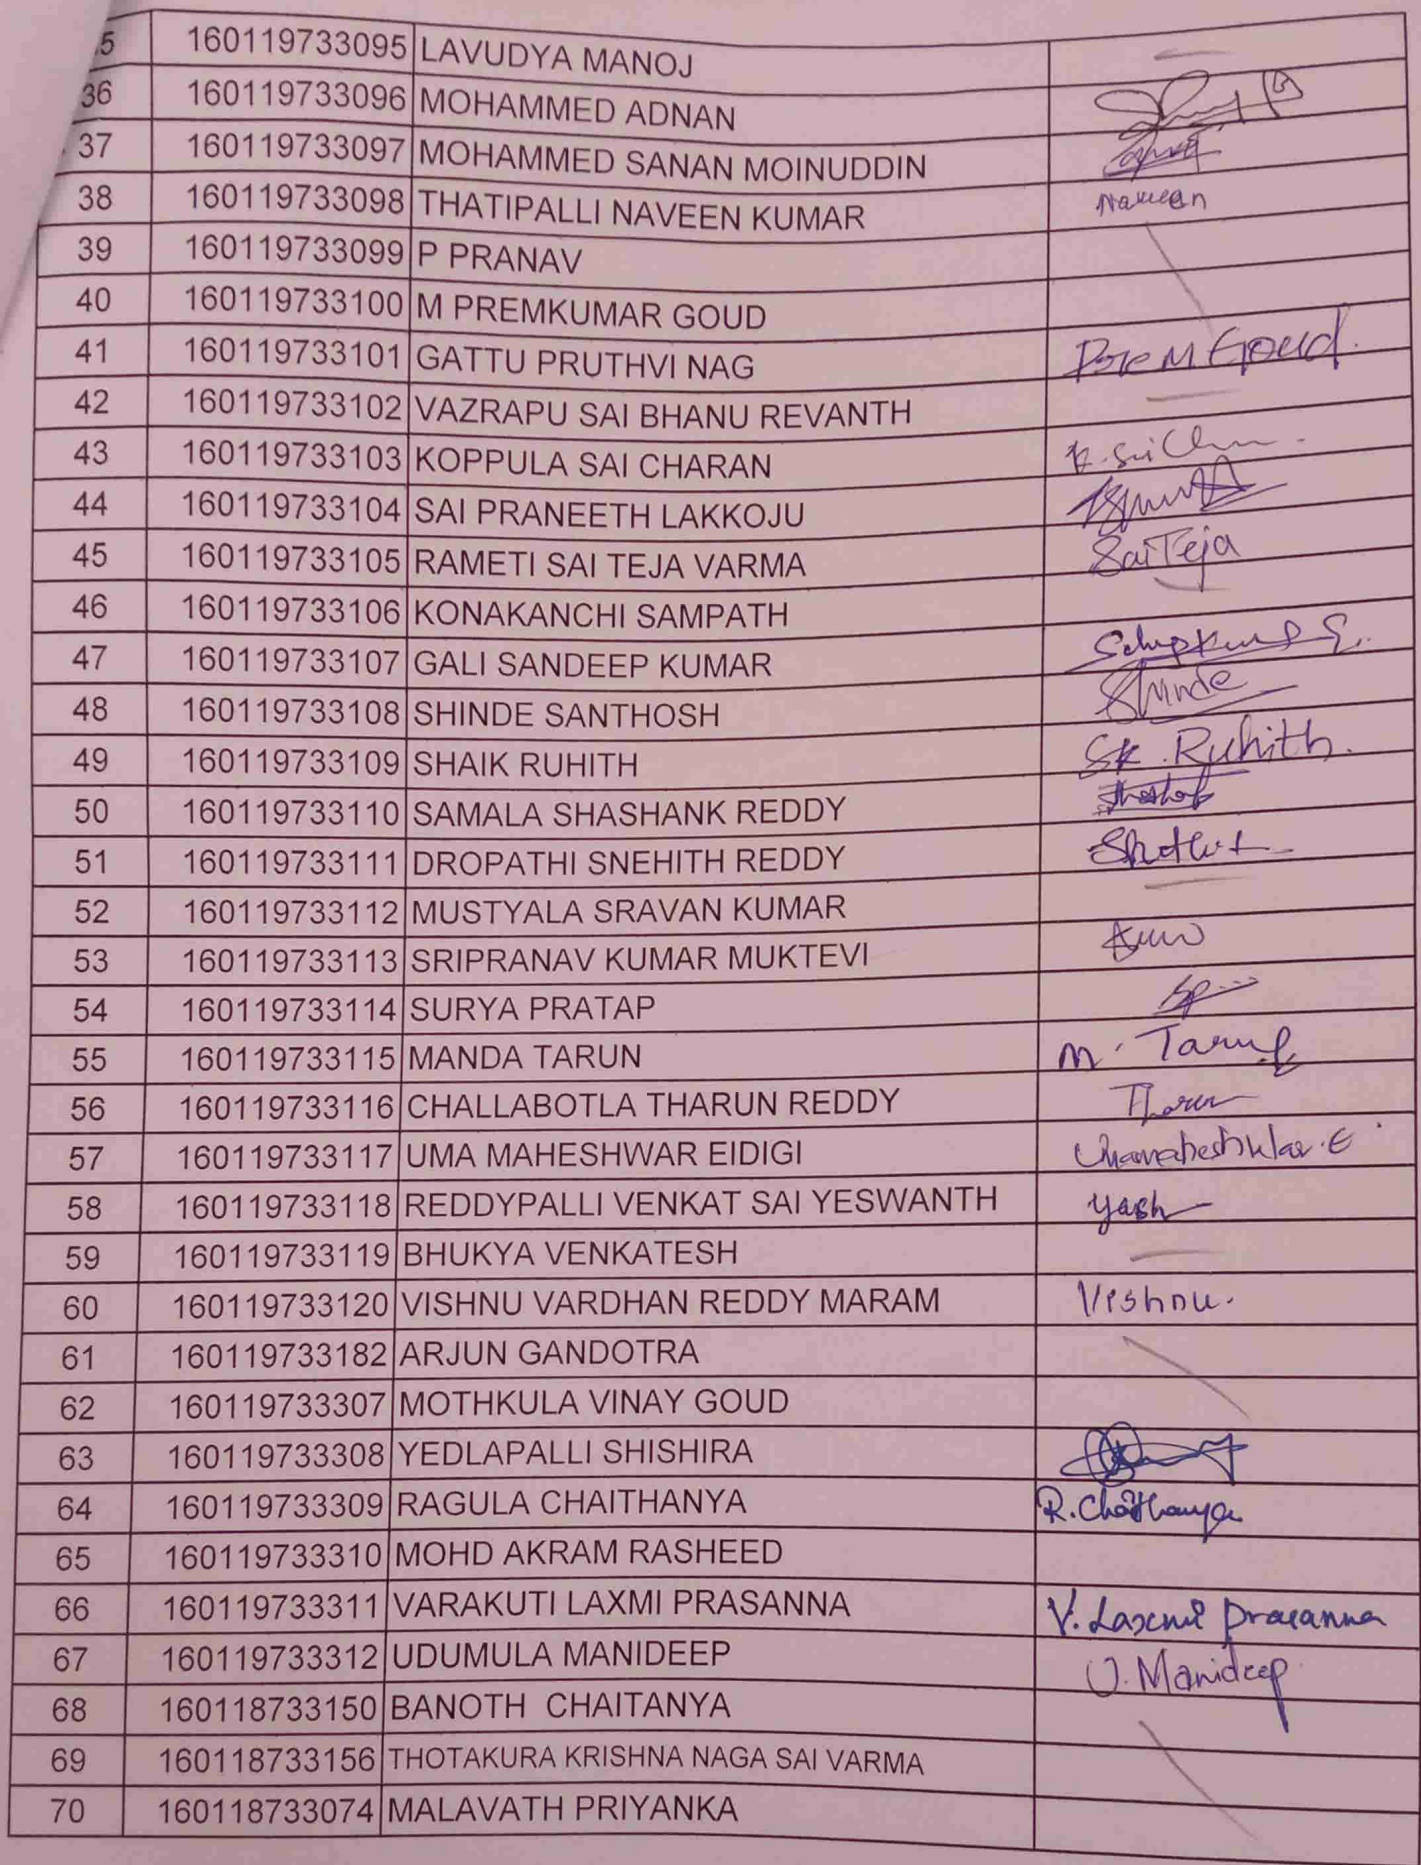 5 160119733095 LAVUDYA MANOJ
36 160119733096 MOHAMMED ADNAN
37 160119733097 MOHAMMED SANAN MOINUDDIN
38 160119733098 THATIPALLI NAVEEN KUMAR Naveen
39 160119733099 P PRANAV
40 160119733100 M PREMKUMAR GOUD
41 160119733101 GATTU PRUTHVI NAG Prem Goud.
42 160119733102 VAZRAPU SAI BHANU REVANTH
43 160119733103 KOPPULA SAI CHARAN
44 160119733104 SAI PRANEETH LAKKOJU
45 160119733105 RAMETI SAI TEJA VARMA SaiTeja
46 160119733106 KONAKANCHI SAMPATH
47 160119733107 GALI SANDEEP KUMAR
48 160119733108 SHINDE SANTHOSH Shinde
49 160119733109 SHAIK RUHITH SK. Ruhith.
50 160119733110 SAMALA SHASHANK REDDY
51 160119733111 DROPATHI SNEHITH REDDY
52 160119733112 MUSTYALA SRAVAN KUMAR
53 160119733113 SRIPRANAV KUMAR MUKTEVI
54 160119733114 SURYA PRATAP
55 160119733115 MANDA TARUN M. Tarun
56 160119733116 CHALLABOTLA THARUN REDDY Tharun
57 160119733117 UMA MAHESHWAR EIDIGI Umamaheshwar.E
58 160119733118 REDDYPALLI VENKAT SAI YESWANTH yash
59 160119733119 BHUKYA VENKATESH
60 160119733120 VISHNU VARDHAN REDDY MARAM Vishnu.
61 160119733182 ARJUN GANDOTRA
62 160119733307 MOTHKULA VINAY GOUD
63 160119733308 YEDLAPALLI SHISHIRA
64 160119733309 RAGULA CHAITHANYA R.Chaithanya
65 160119733310 MOHD AKRAM RASHEED
66 160119733311 VARAKUTI LAXMI PRASANNA V. Laxmi Prasanna
67 160119733312 UDUMULA MANIDEEP U. Manideep
68 160118733150 BANOTH CHAITANYA
69 160118733156 THOTAKURA KRISHNA NAGA SAI VARMA
70 160118733074 MALAVATH PRIYANKA